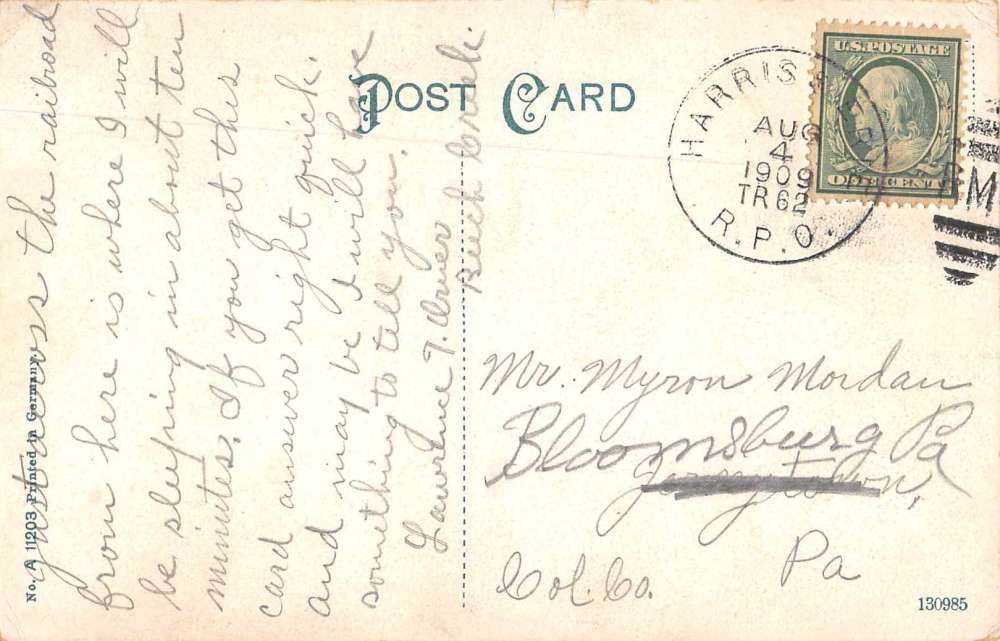 Just across the railroad
from here is where I will
be sleeping in about ten
minutes. If you get this
card answer right quick.
and may be I will have
something to tell you.
Lawrence T.
Beech Creek.
No. A 11203 Printed in Germany.
POST CARD
U.S. POSTAGE
ONE CENT
AUG
4
1909
TR 62
R.P.O.
M
Mr. Myron Mordan
Bloomsburg Pa
Jerseytown,
Col. Co. Pa
130985